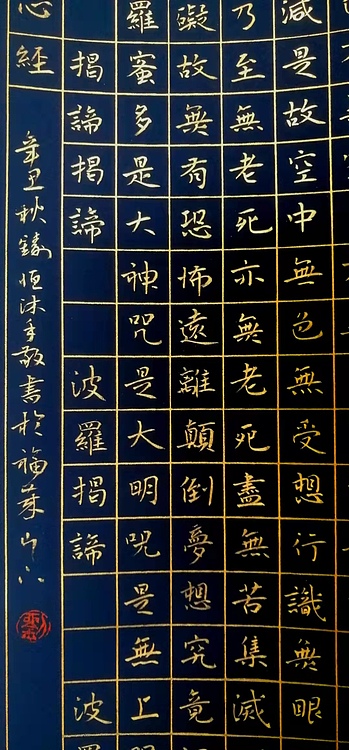 減是故空中無色無受想行識無眼
乃至無老死亦無老死盡無苦集滅
礙故無有恐怖遠離顛倒夢想究竟
羅蜜多是大神咒是大明咒是無上
揭諦揭諦 波羅揭諦 波羅
心經 辛丑秋恒沐手敬書於福萊山下